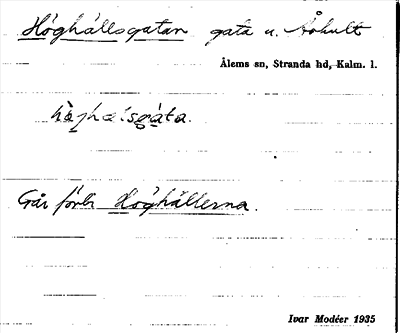 Höghällsgatan gata u. Åshult
Ålems sn, Stranda hd, Kalm. l.
Går förbi Höghällerna.
Ivar Modéer 1935